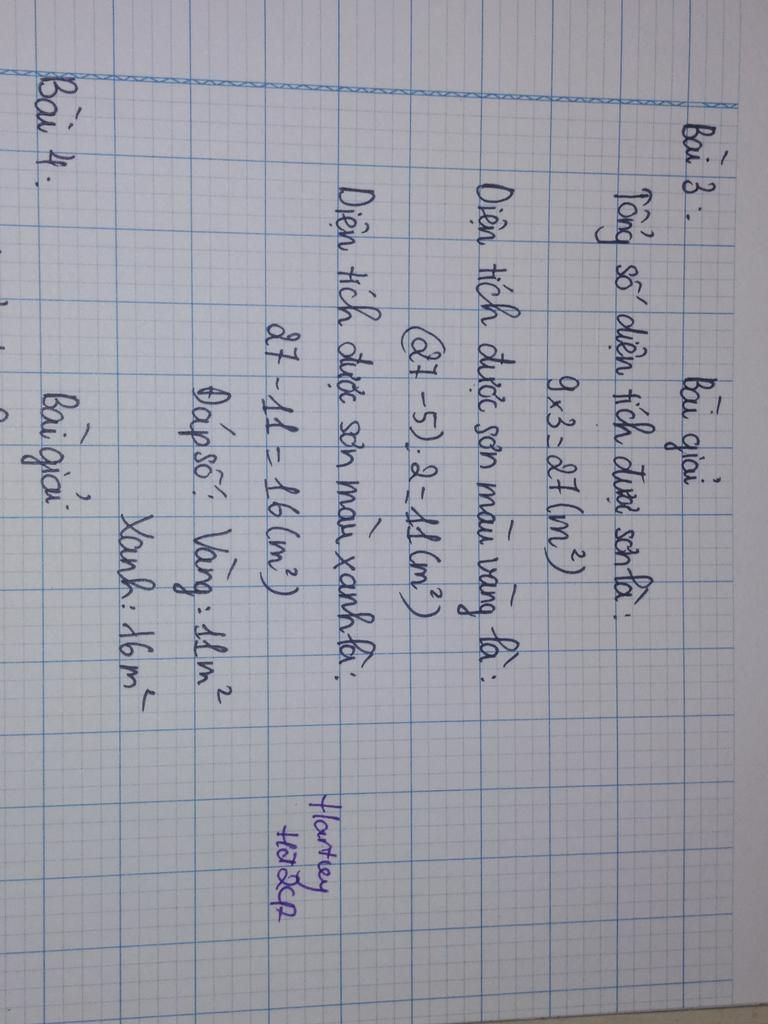 Bài 3:
Bài giải
Tổng số diện tích được sơn là:
9 x 3 = 27 (m²)
Diện tích được sơn màu vàng là:
(27 - 5) : 2 = 11 (m²)
Diện tích được sơn màu xanh là:
27 - 11 = 16 (m²)
Đáp số: Vàng: 11 m²
Xanh: 16 m²
Hartley
Bài 4:
Bài giải